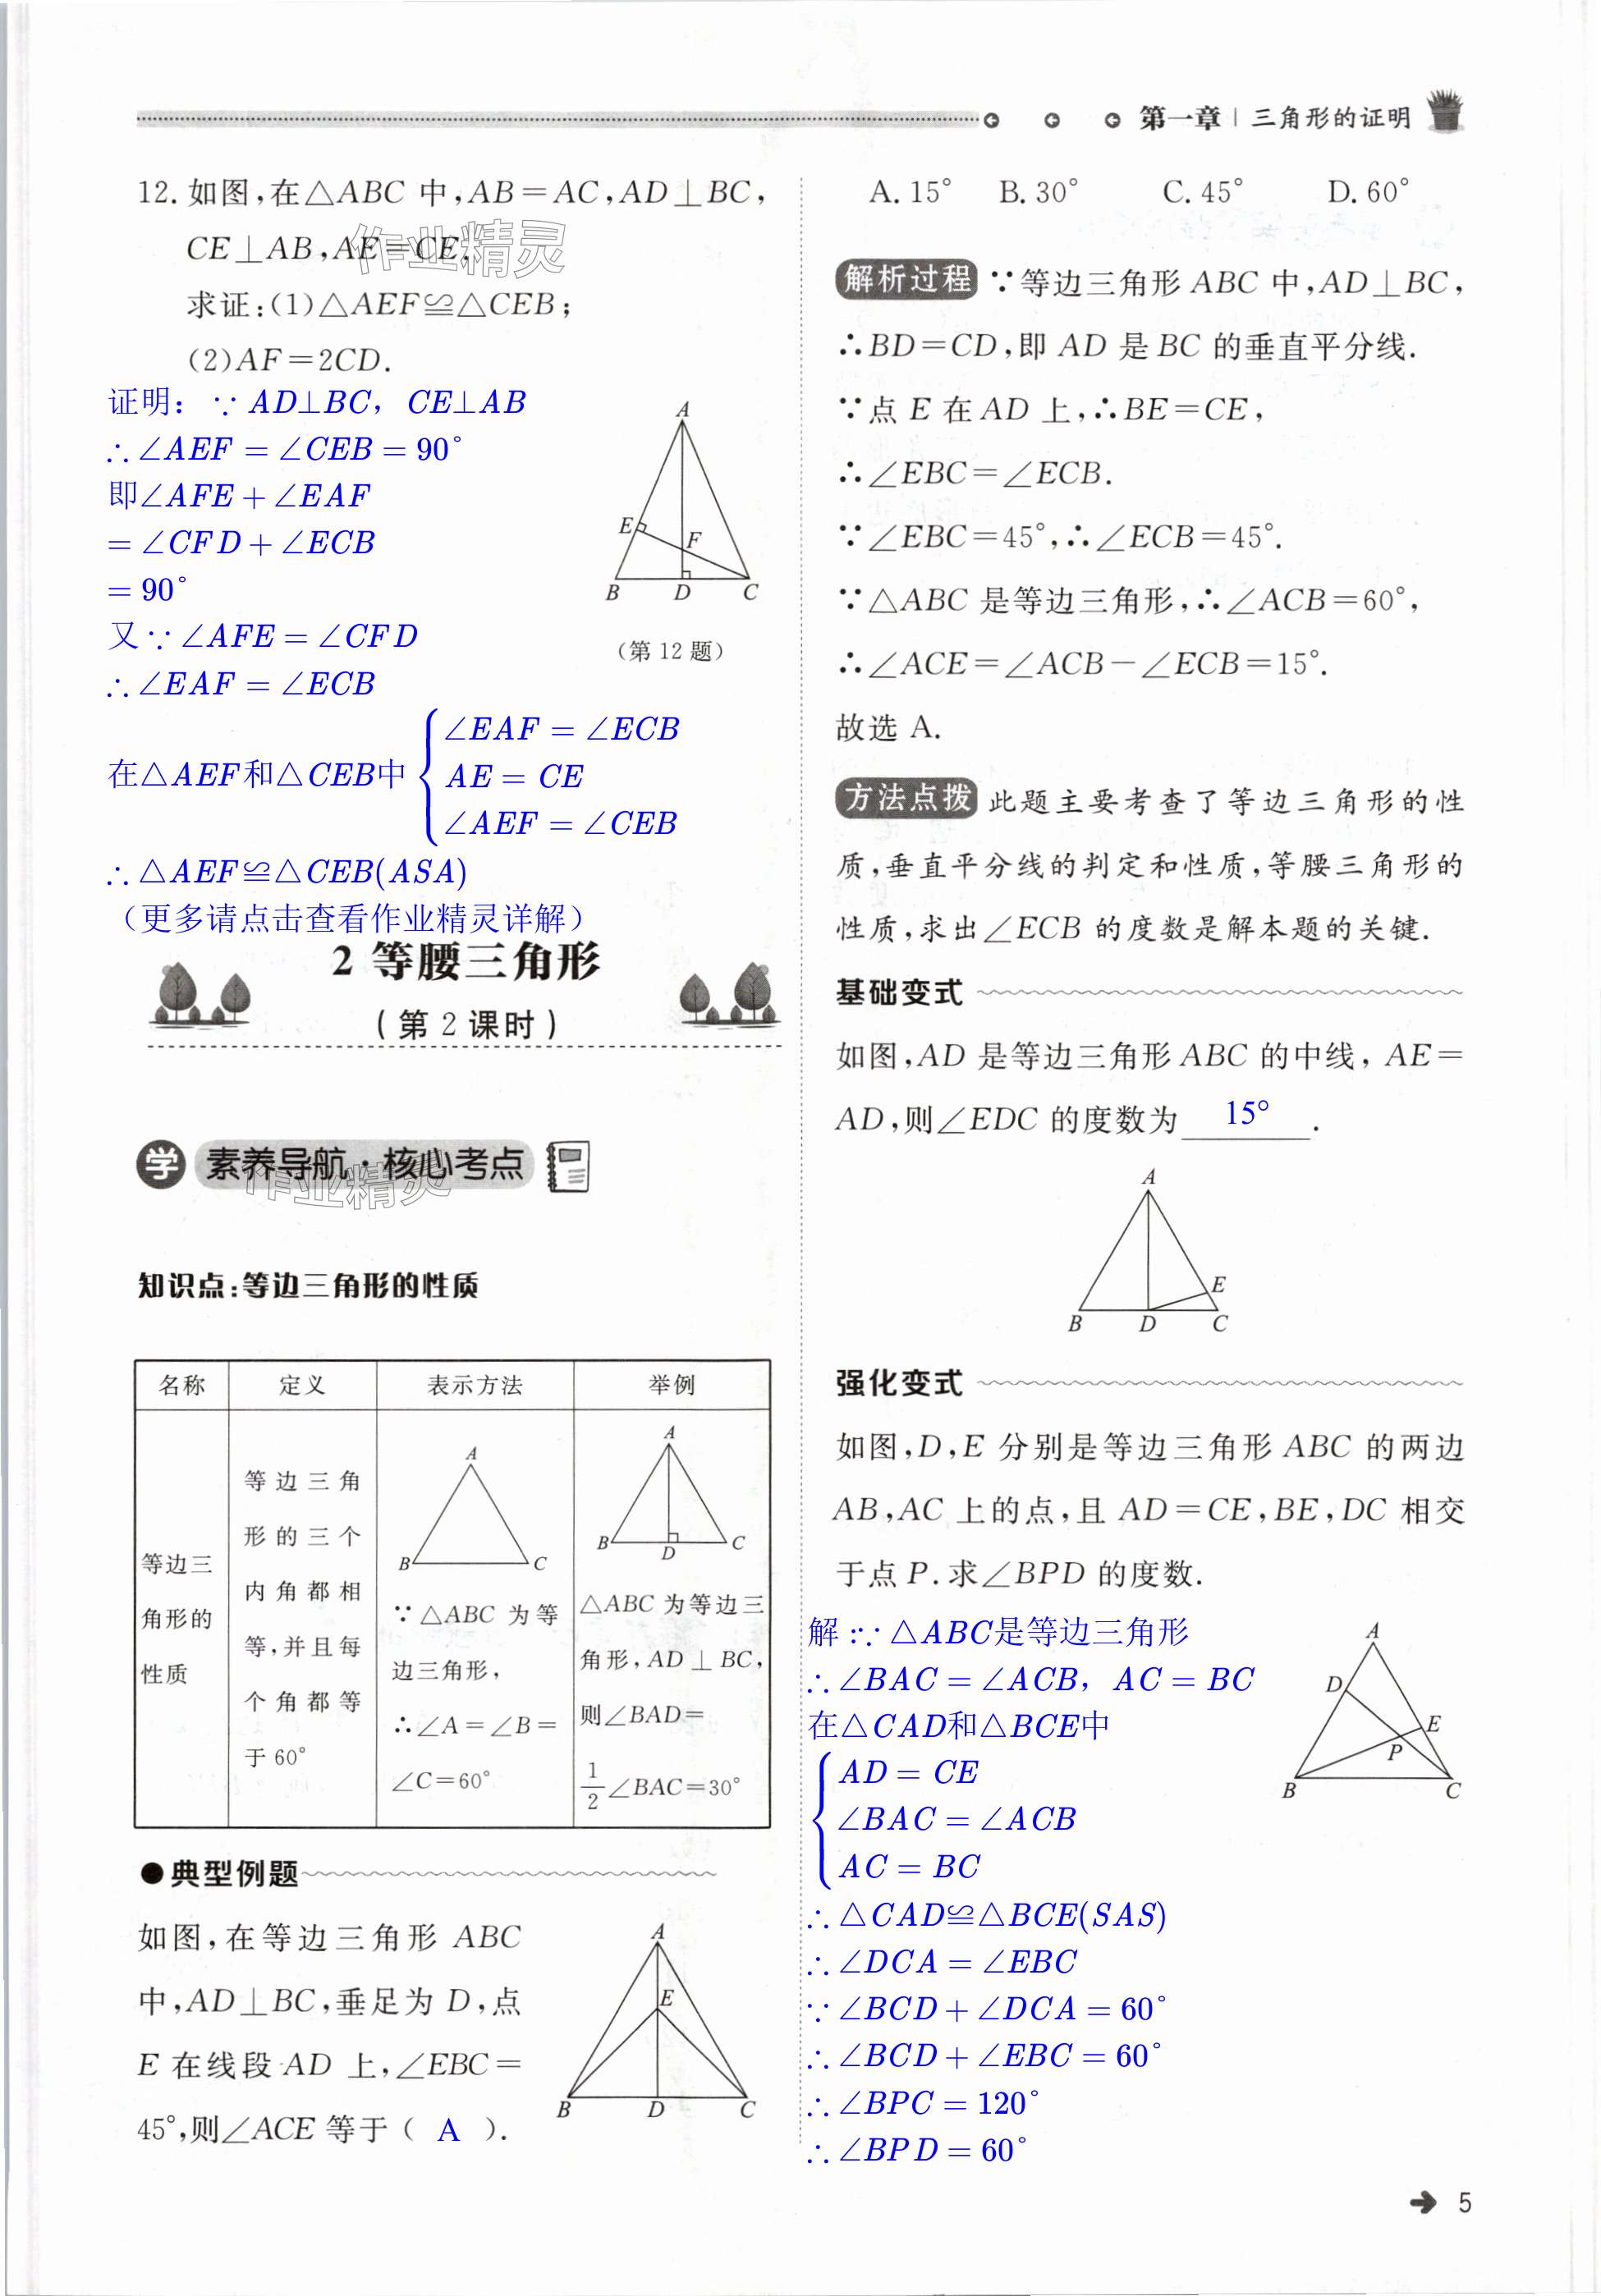 第一章 | 三角形的证明
12. 如图,在△ABC 中,AB=AC,AD⊥BC,
CE⊥AB,AE=CE.
作业精灵
求证:(1)△AEF≌△CEB;
(2)AF=2CD.
证明：∵ AD⊥BC，CE⊥AB
∴ ∠AEF = ∠CEB = 90°
即∠AFE + ∠EAF
= ∠CFD + ∠ECB
= 90°
又∵ ∠AFE = ∠CFD
∴ ∠EAF = ∠ECB
在△AEF和△CEB中
∠EAF = ∠ECB
AE = CE
∠AEF = ∠CEB
∴ △AEF≌△CEB(ASA)
（更多请点击查看作业精灵详解）
A
E
F
B D C
(第 12 题)
2 等腰三角形
(第 2 课时)
学 素养导航·核心考点
作业精灵
知识点:等边三角形的性质
名称 定义 表示方法 举例
等边三
角形的
性质
等边三角
形的三个
内角都相
等,并且每
个角都等
于 60°
A
B C
∵△ABC 为等
边三角形,
∴∠A=∠B=
∠C=60°
A
B D C
△ABC 为等边三
角形,AD⊥BC,
则∠BAD=
1/2∠BAC=30°
●典型例题
如图,在等边三角形 ABC
中,AD⊥BC,垂足为 D,点
E 在线段 AD 上,∠EBC=
45°,则∠ACE 等于( A ).
A
E
B D C
A. 15° B. 30° C. 45° D. 60°
解析过程 ∵等边三角形 ABC 中,AD⊥BC,
∴BD=CD,即 AD 是 BC 的垂直平分线.
∵点 E 在 AD 上,∴BE=CE,
∴∠EBC=∠ECB.
∵∠EBC=45°,∴∠ECB=45°.
∵△ABC 是等边三角形,∴∠ACB=60°,
∴∠ACE=∠ACB-∠ECB=15°.
故选 A.
方法点拨 此题主要考查了等边三角形的性
质,垂直平分线的判定和性质,等腰三角形的
性质,求出∠ECB 的度数是解本题的关键.
基础变式
如图,AD 是等边三角形 ABC 的中线, AE=
AD,则∠EDC 的度数为 15° .
A
E
B D C
强化变式
如图,D,E 分别是等边三角形 ABC 的两边
AB,AC 上的点,且 AD=CE,BE,DC 相交
于点 P.求∠BPD 的度数.
解:∵ △ABC是等边三角形
∴ ∠BAC = ∠ACB，AC = BC
在△CAD和△BCE中
AD = CE
∠BAC = ∠ACB
AC = BC
∴ △CAD≌△BCE(SAS)
∴ ∠DCA = ∠EBC
∵ ∠BCD + ∠DCA = 60°
∴ ∠BCD + ∠EBC = 60°
∴ ∠BPC = 120°
∴ ∠BPD = 60°
A
D
E
P
B C
5